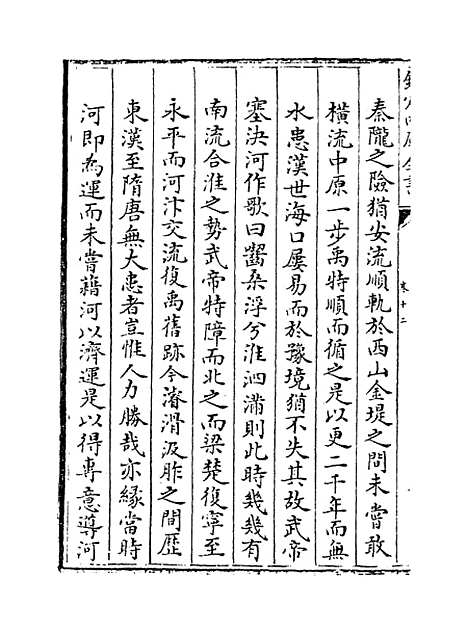 秦隴之險猶安流順軌於西山金堤之間未嘗敢
橫流中原一步禹特順而循之是以更二千年而無
水患漢世海口屢易而於豫境猶不失其故武帝
塞決河作歌曰齧桑浮兮淮泗滿則此時幾幾有
南流合淮之勢武帝特障而北之而梁楚復寧至
永平而河汴交流復禹舊跡今濬滑汲胙之間歷
東漢至隋唐無大患者豈惟人力勝哉亦緣當時
河即為運而未嘗藉河以濟運是以得專意導河
卷十二